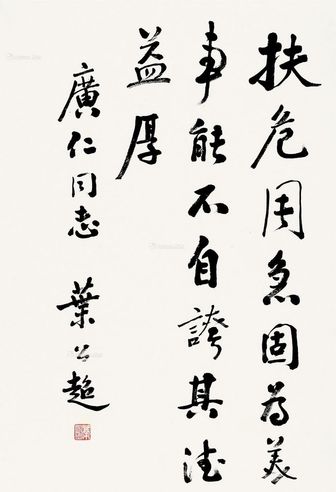 扶危周急固為美
事能不自誇其德
益厚
廣仁同志 葉公超